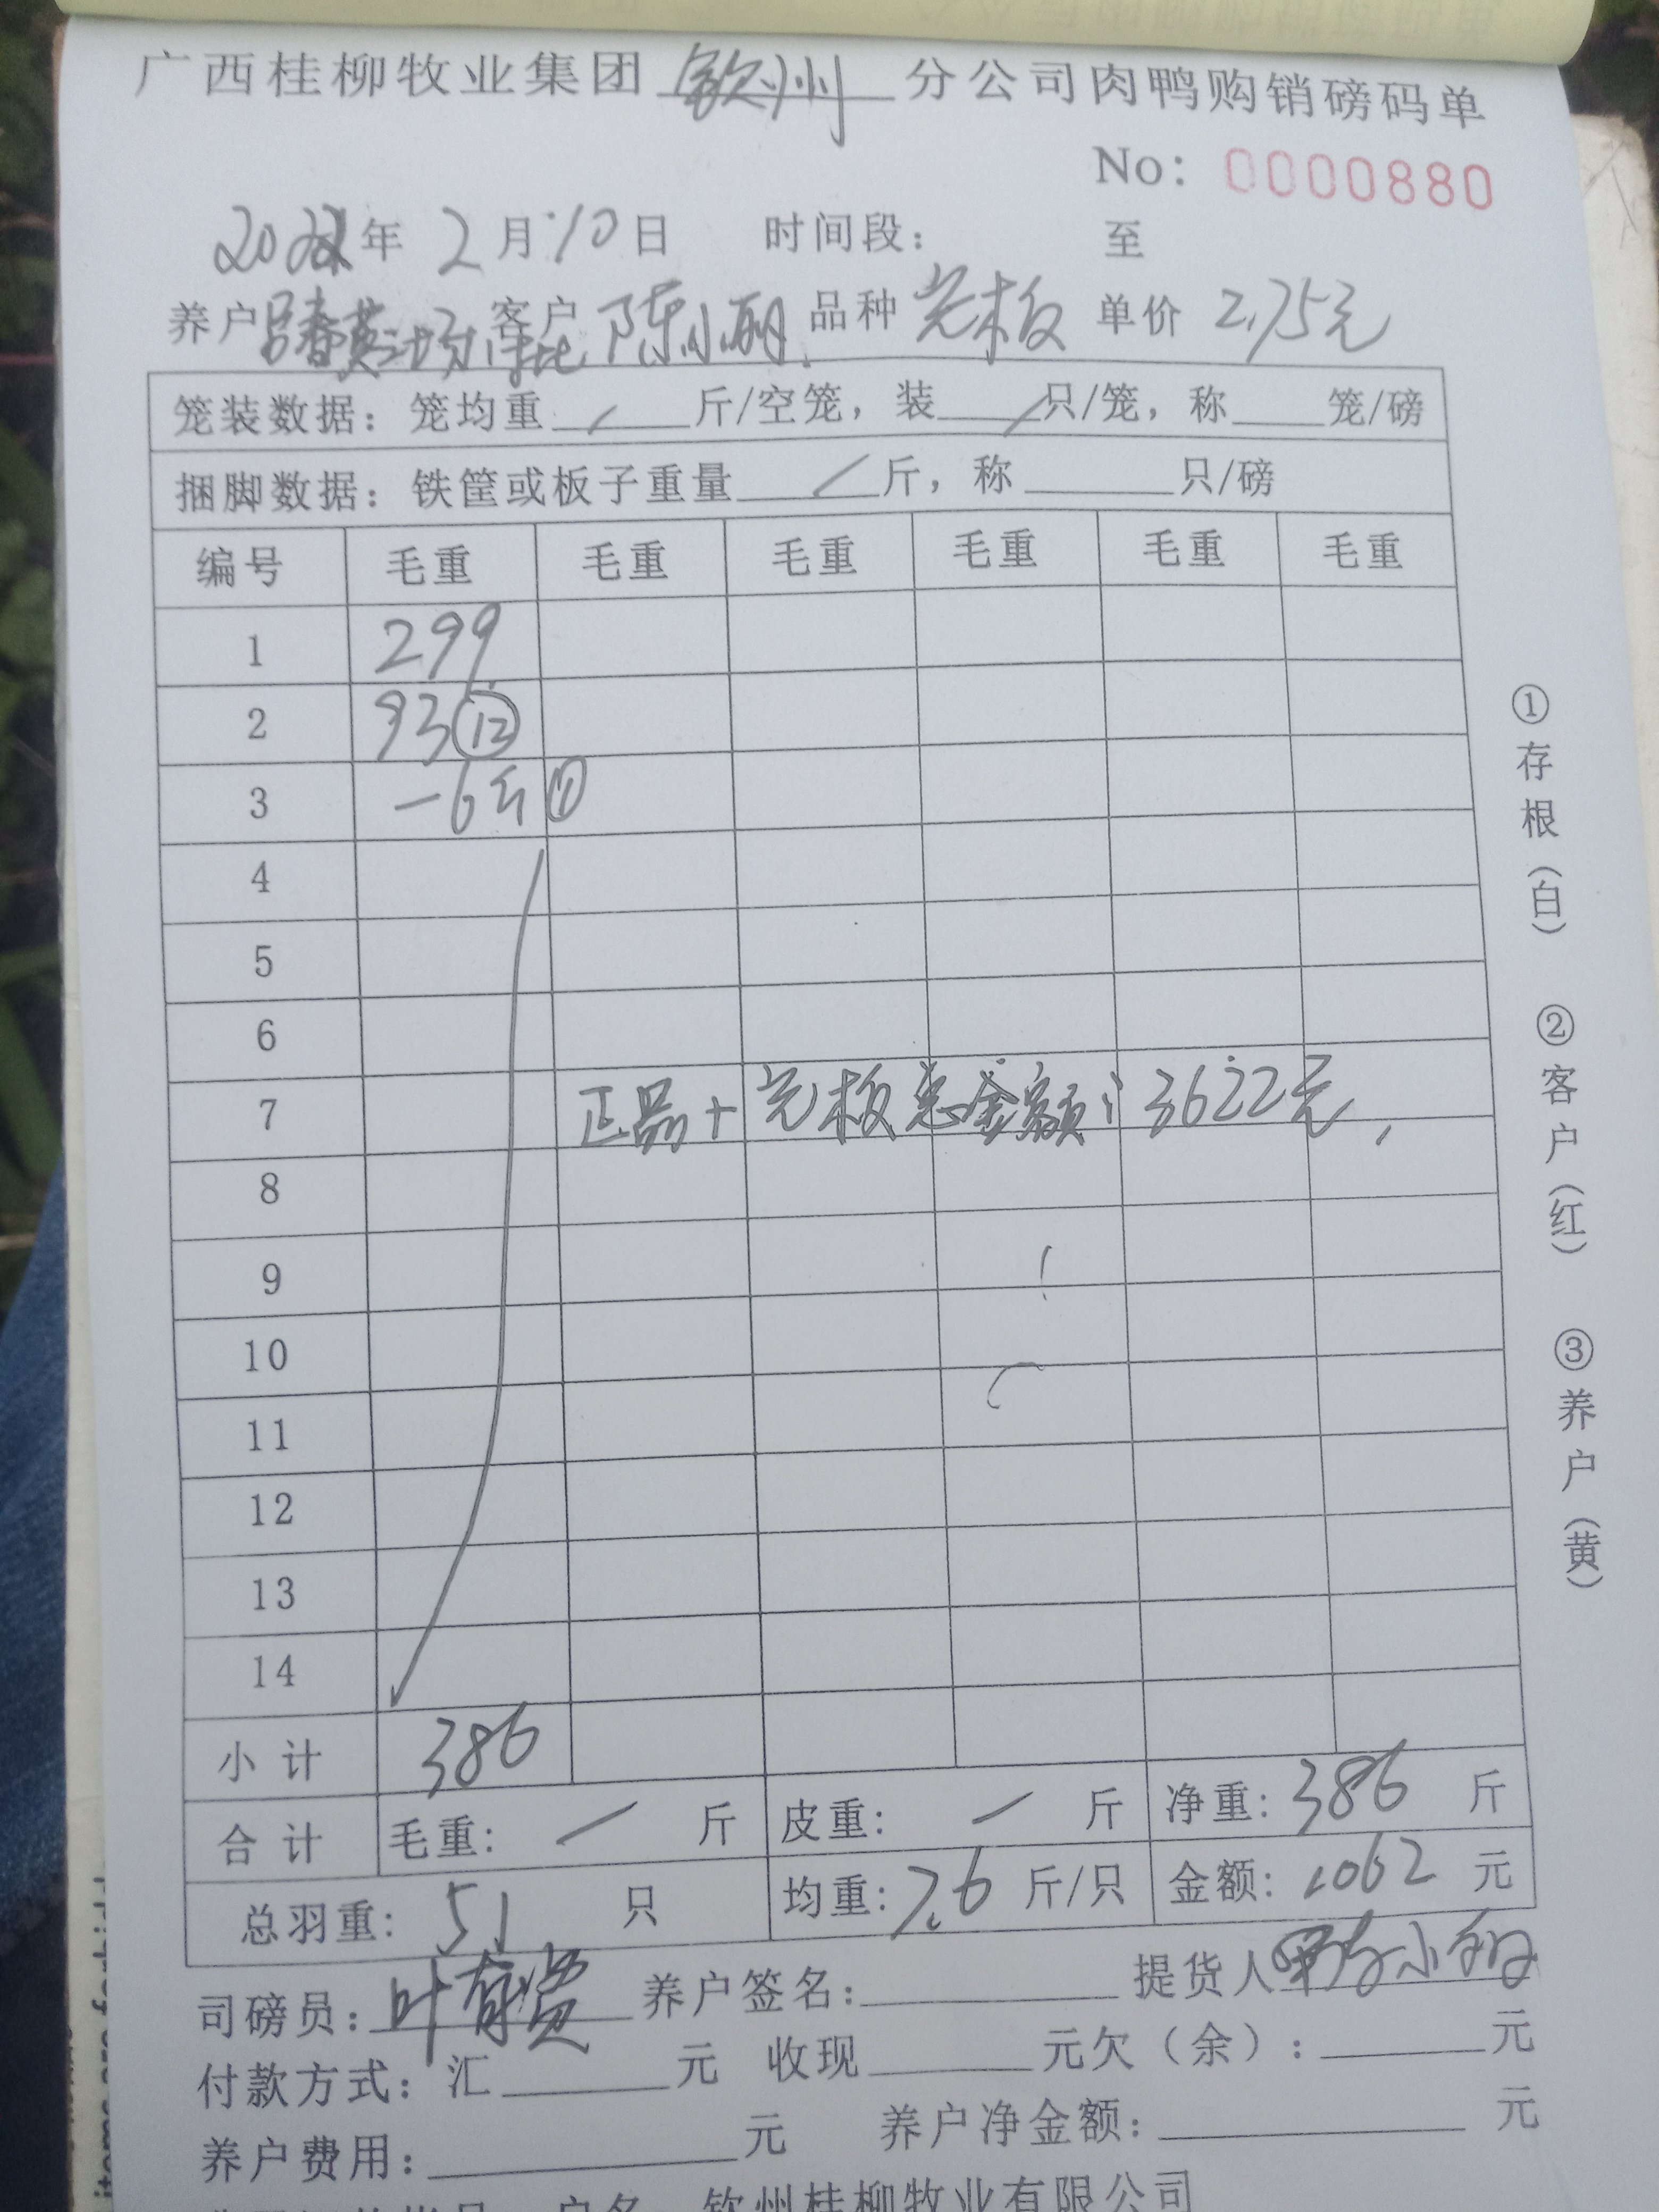 广西桂柳牧业集团 钦州 分公司肉鸭购销磅码单
No: 0000880
年 2 月 10 日 时间段: 至
养户 吕春英 客户 陈小丽 品种 光板 单价 2.75元
笼装数据: 笼均重 / 斤/空笼, 装 / 只/笼, 称 笼/磅
捆脚数据: 铁筐或板子重量 / 斤, 称 只/磅
编号 毛重 毛重 毛重 毛重 毛重 毛重
1 299
2 93 ⑫
3 -6斤 ①
4
5
6
7 正品+光板总金额: 3622元
8
9
10
11
12
13
14
小计 386
合计 毛重: / 斤 皮重: / 斤 净重: 386 斤
总羽重: 51 只 均重: 7.6 斤/只 金额: 1062 元
司磅员: 养户签名: 提货人
付款方式: 汇 元 收现 元欠(余): 元
养户费用: 元 养户净金额: 元
户名 钦州桂柳牧业有限公司
①存根(白) ②客户(红) ③养户(黄)